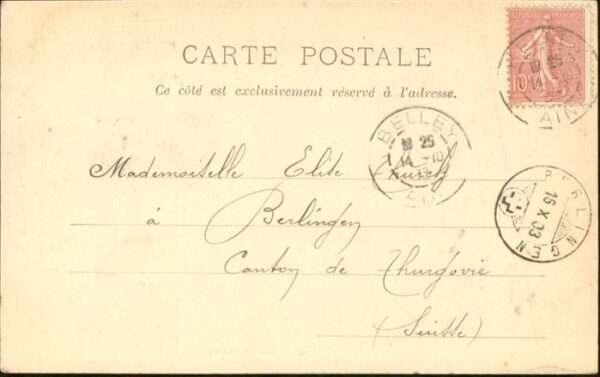 CARTE POSTALE
Ce côté est exclusivement réservé à l'adresse.
10
BELLEY
18 25
14 -10
AIN
Mademoiselle Elite
à Berlingen
Canton de Thurgovie
(Suisse)
BERLINGEN
15 X 03